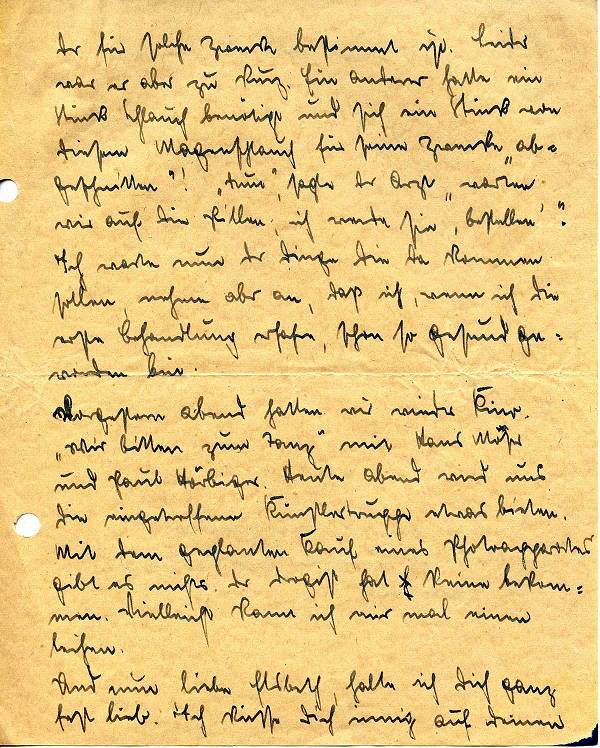 der für solche Zwecke bestimmt ist. Leider
war er aber zu kurz. Ein anderer hatte ein
Stück Schlauch benötigt und sich ein Stück von
diesem Magenschlauch für seine Zwecke „ab=
geschnitten"! „Tun", sagte der Arzt „warten
wir auf die Pillen, ich werde sie ‚bestellen'".
Ich warte nun der Dinge die da kommen
sollen, nehme aber an, daß ich, wenn ich die
erste Behandlung erfahre, schon so gesund ge=
worden bin.
Vorgestern abend hatten wir wieder Kino.
„Wir bitten zum Tanz" mit Hans Moser
und Paul Hörbiger. Heute abend wird uns
die eingetroffene Künstlertruppe etwas bieten.
Mit dem geplanten Kauf eines Photoapparates
gibt es nichts. Der Drogist hat keine bekom=
men. Vielleicht kann ich mir mal einen
leihen.
Und nun liebe Elsbeth, halte ich Dich ganz
fest lieb. Ich küsse Dich innig auf deinen